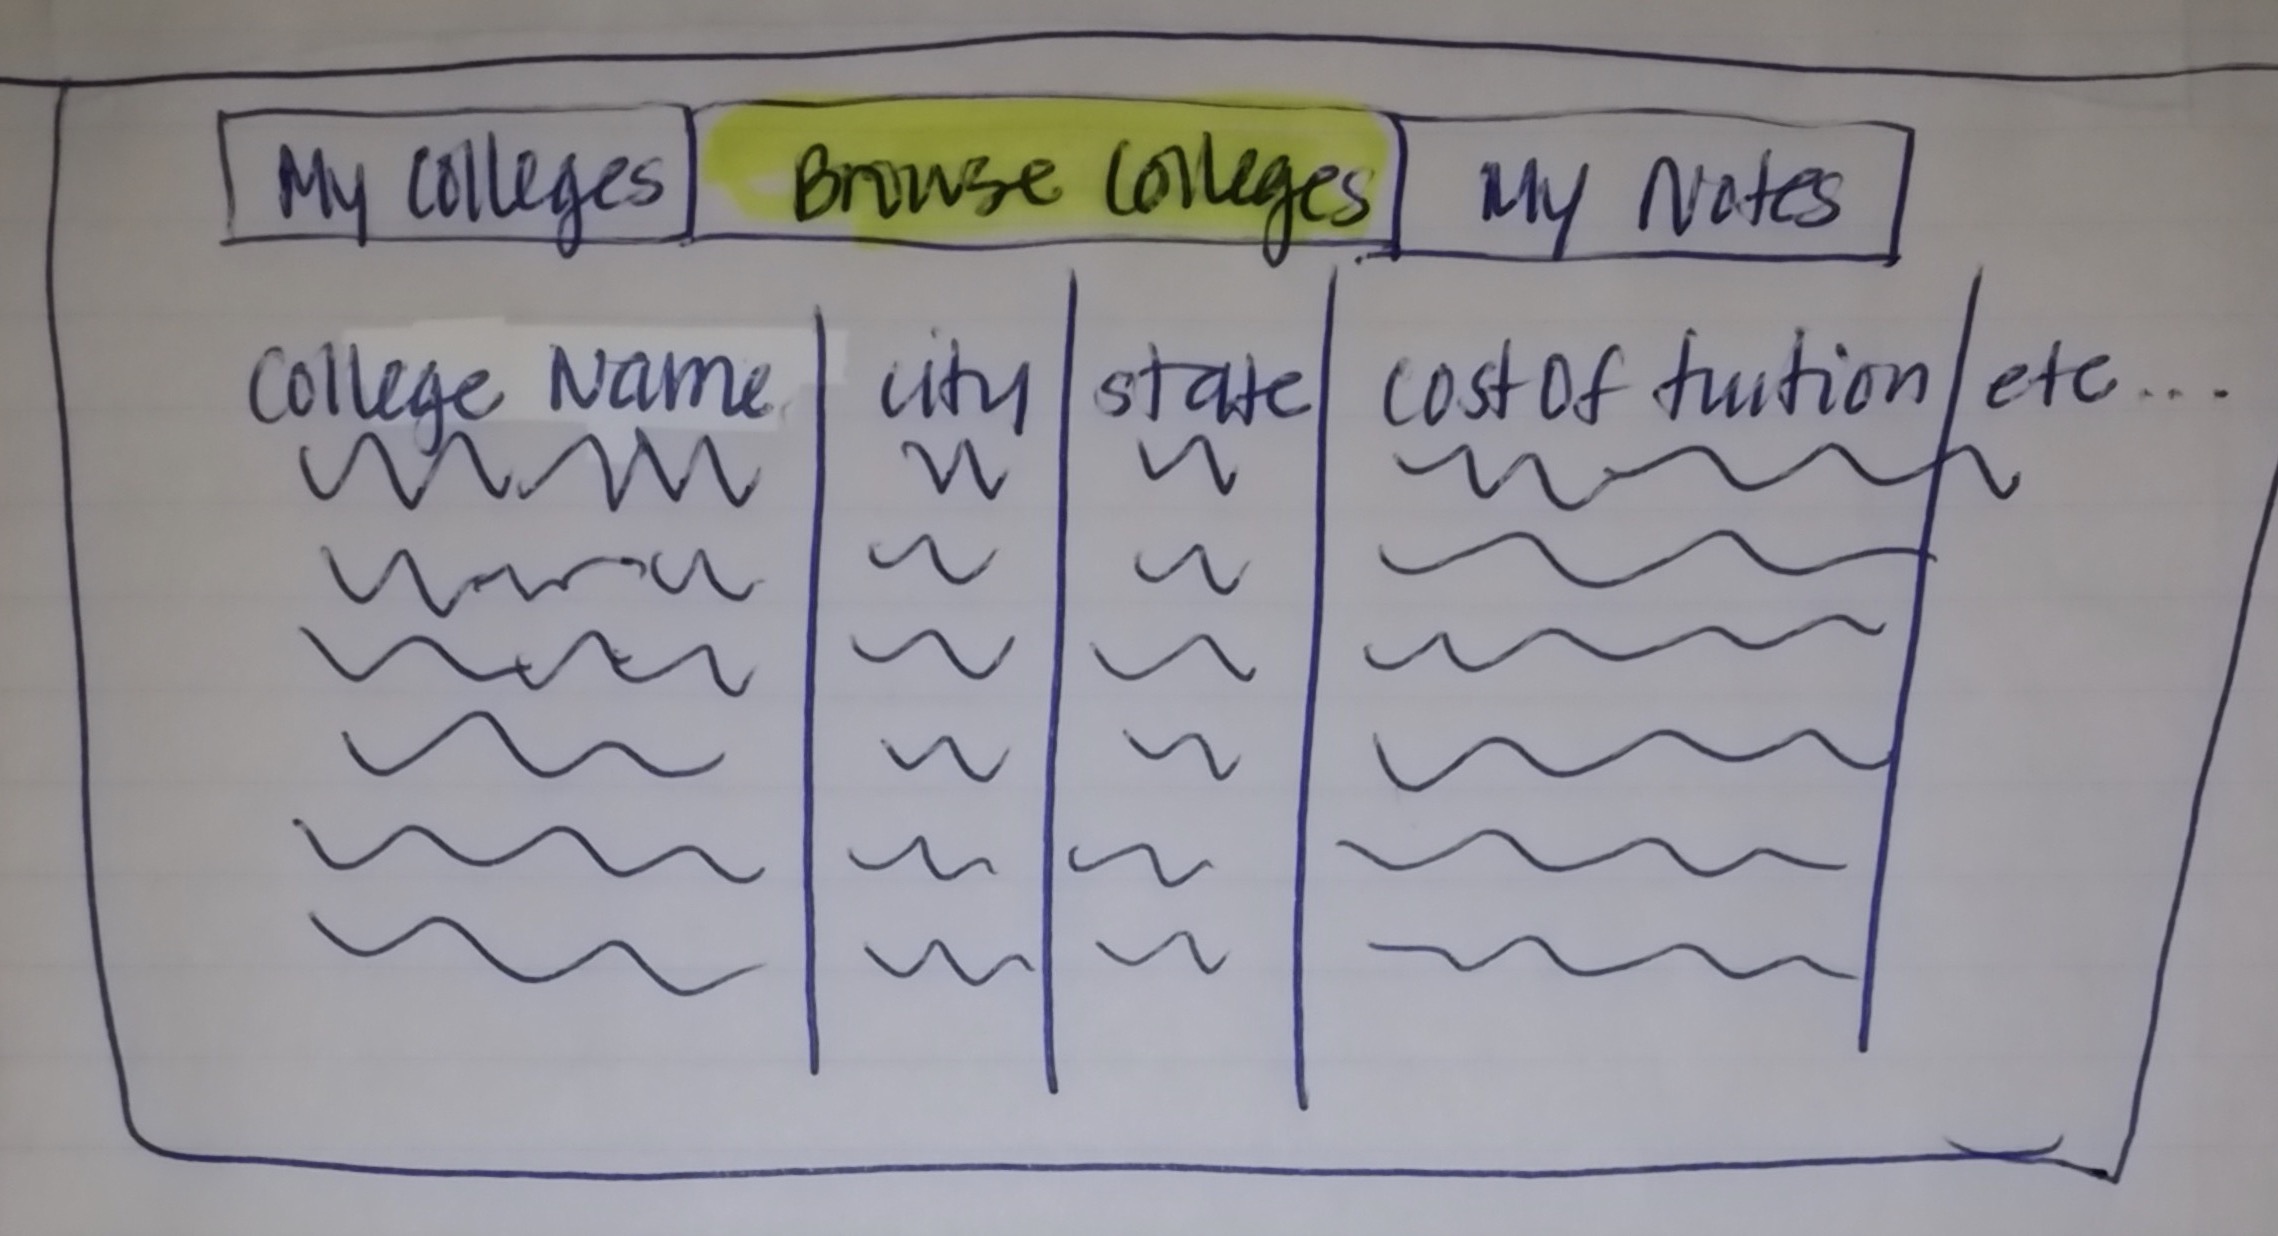 My Colleges Browse Colleges My Notes
College Name city state cost of tuition etc...